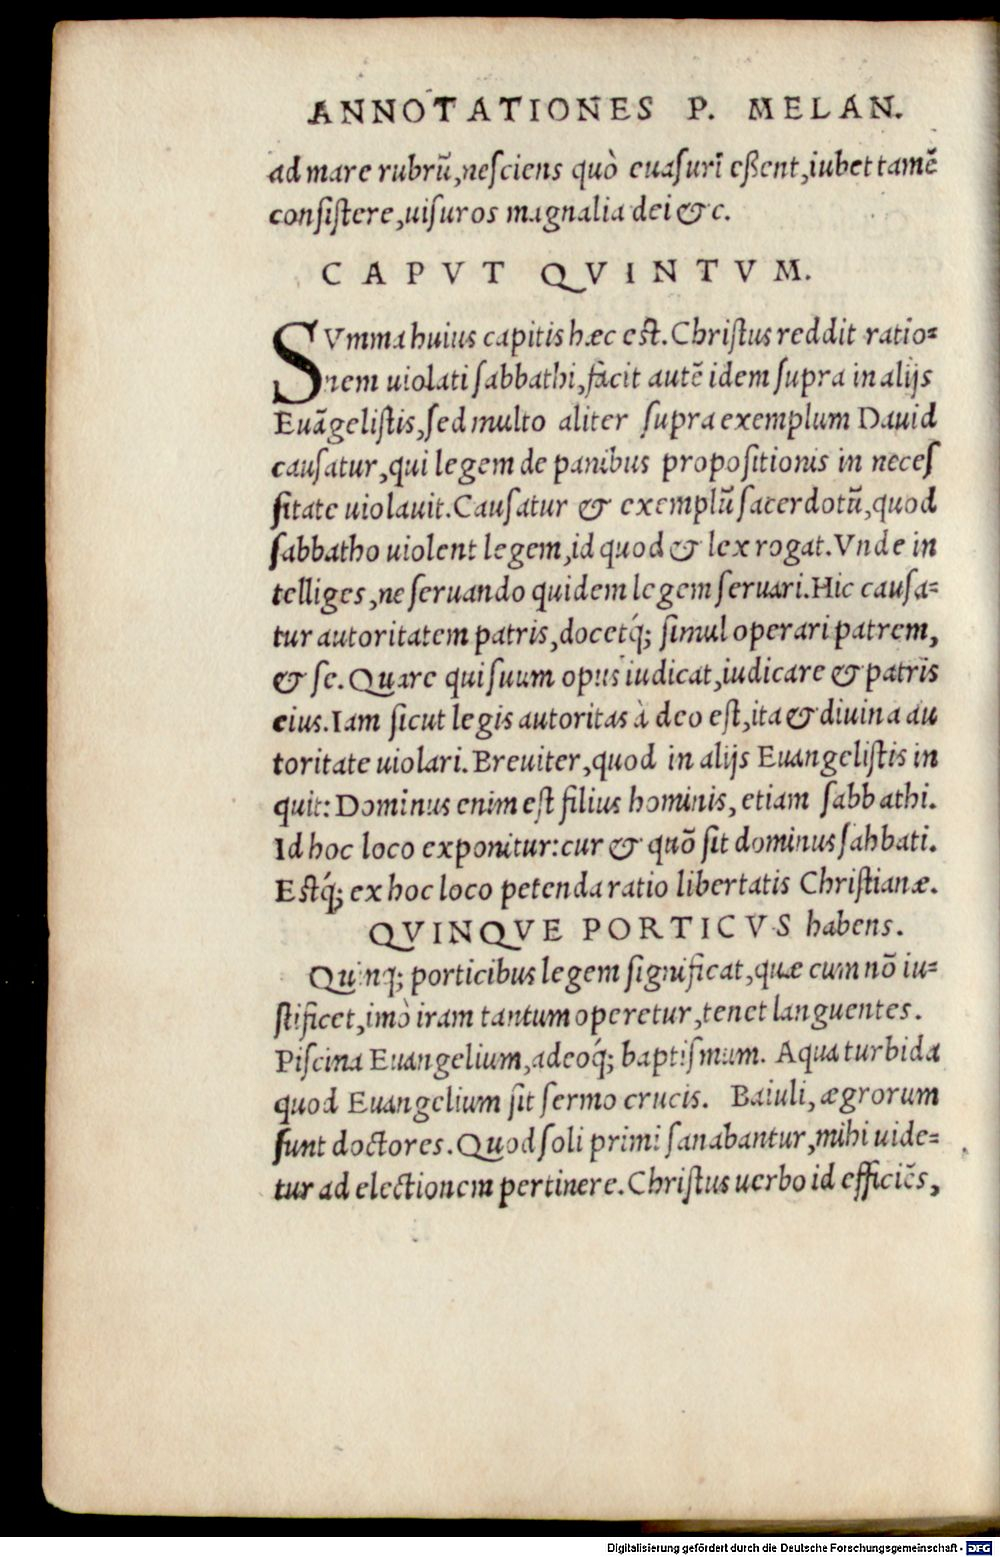 ANNOTATIONES P. MELAN.
ad mare rubrũ,neſciens quò euaſurĩ eßent,iubet tamẽ
conſiſtere,uiſuros magnalia dei & c.
CAPVT QVINTVM.
SVmma huius capitis hæc eſt. Chriſtus reddit ratio=
nem uiolati ſabbathi,facit autẽ idem ſupra in alijs
Euãgeliſtis,ſed multo aliter ſupra exemplum Dauid
cauſatur,qui legem de panibus propoſitionis in neceſ
ſitate uiolauit.Cauſatur & exemplũ ſacerdotũ,quod
ſabbatho uiolent legem,id quod & lex rogat.Vnde in
telliges,ne ſeruando quidem legem ſeruari.Hic cauſa=
tur autoritatem patris,docetq́; ſimul operari patrem,
& ſe.Quare qui ſuum opus iudicat,iudicare & patris
eius.Iam ſicut legis autoritas à deo eſt,ita & diuina au
toritate uiolari.Breuiter,quod in alijs Euangeliſtis in
quit: Dominus enim eſt filius hominis, etiam ſabbathi.
Id hoc loco exponitur:cur & quõ ſit dominus ſabbati.
Eſtq́; ex hoc loco petenda ratio libertatis Chriſtianæ.
QVINQVE PORTICVS habens.
Quinq; porticibus legem ſignificat,quæ cum nõ iu=
ſtificet,imò iram tantum operetur,tenet languentes.
Piſcina Euangelium,adeoq́; baptiſmum. Aqua turbida
quod Euangelium ſit ſermo crucis. Baiuli, ægrorum
ſunt doctores.Quod ſoli primi ſanabantur,mihi uide=
tur ad electionem pertinere.Chriſtus uerbo id efficiẽs,
Digitalisierung gefördert durch die Deutsche Forschungsgemeinschaft - DFG